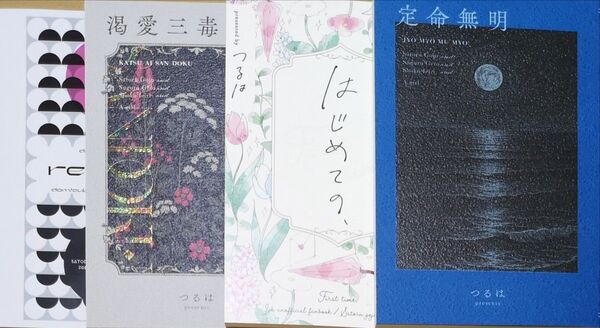 re
渇愛三毒
KATSU AI SAN DOKU
Satoru Gojo and
Suguru Geto and
Shoko Ieiri, and
A girl
つるは
presents.
presented by
つるは
はじめての、
First time.
定命無明
JYO MYO MU MYO
Satoru Gojo and
Suguru Geto and
Shoko Ieiri, and
A girl
つるは
presents.